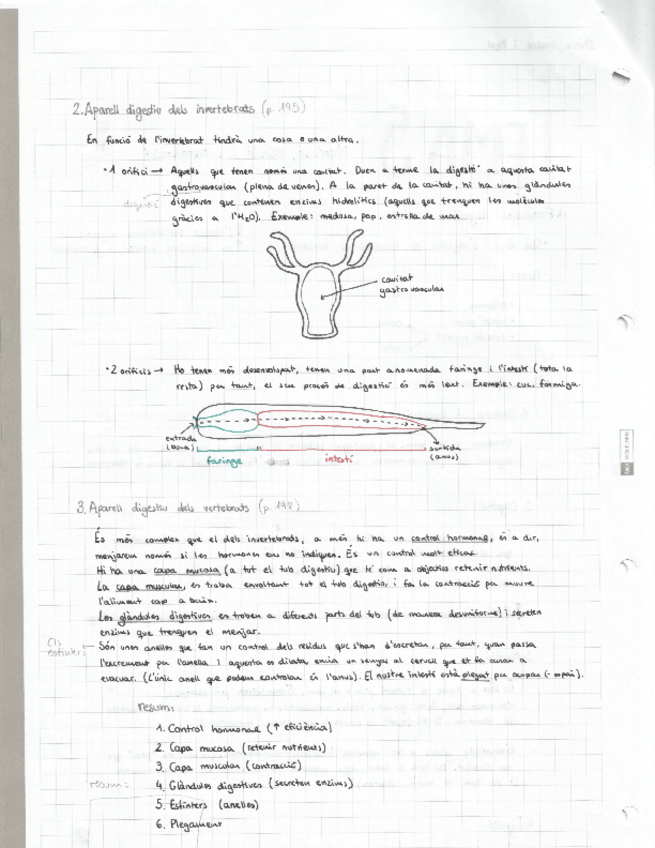 2. Aparell digestiu dels invertebrats (p. 195)
En funció de l'invertebrat tindrà una cosa o una altra.
· 1 orifici → Aquells que tenen només una cavitat. Duen a terme la digestió a aquesta cavitat
gastrovascular (plena de venes). A la paret de la cavitat, hi ha unes glàndules
digestió
digestives que contenen enzims hidrolítics (aquells que trenquen les molècules
gràcies a l'H2O). Exemple: medusa, pop, estrella de mar.
cavitat
gastrovascular
· 2 orificis → Ho tenen més desenvolupat, tenen una part anomenada faringe i l'intestí (tota la
resta) per tant, el seu procés de digestió és més lent. Exemple: cuc, formiga.
entrada
(boca)
sortida
(anus)
faringe
intestí
3. Aparell digestiu dels vertebrats (p. 198)
És més complex que el dels invertebrats, a més hi ha un control hormonal, és a dir,
menjarem només si les hormones ens ho indiquen. És un control molt eficaç.
Hi ha una capa mucosa (a tot el tub digestiu) que té com a objectiu retenir nutrients.
La capa muscular, es troba envoltant tot el tub digestiu, i fa la contracció per moure
l'aliment cap a baix.
Les glàndules digestives es troben a diferents parts del tub (de manera desuniforme) i secreten
enzims que trenquen el menjar.
Els
esfínters
Són unes anelles que fan un control dels residus que s'han d'excretar, per tant, quan passa
l'excrement per l'anella i aquesta es dilata, envia un senyal al cervell que et fa anar a
evacuar. (L'únic anell que podem controlar és l'anus). El nostre intestí està plegat per ocupar (- espai).
resum:
1. Control hormonal (↑ eficiència)
2. Capa mucosa (retenir nutrients)
3. Capa muscular (contracció)
resum:
4. Glàndules digestives (secreten enzims)
5. Esfínters (anelles)
6. Plegament